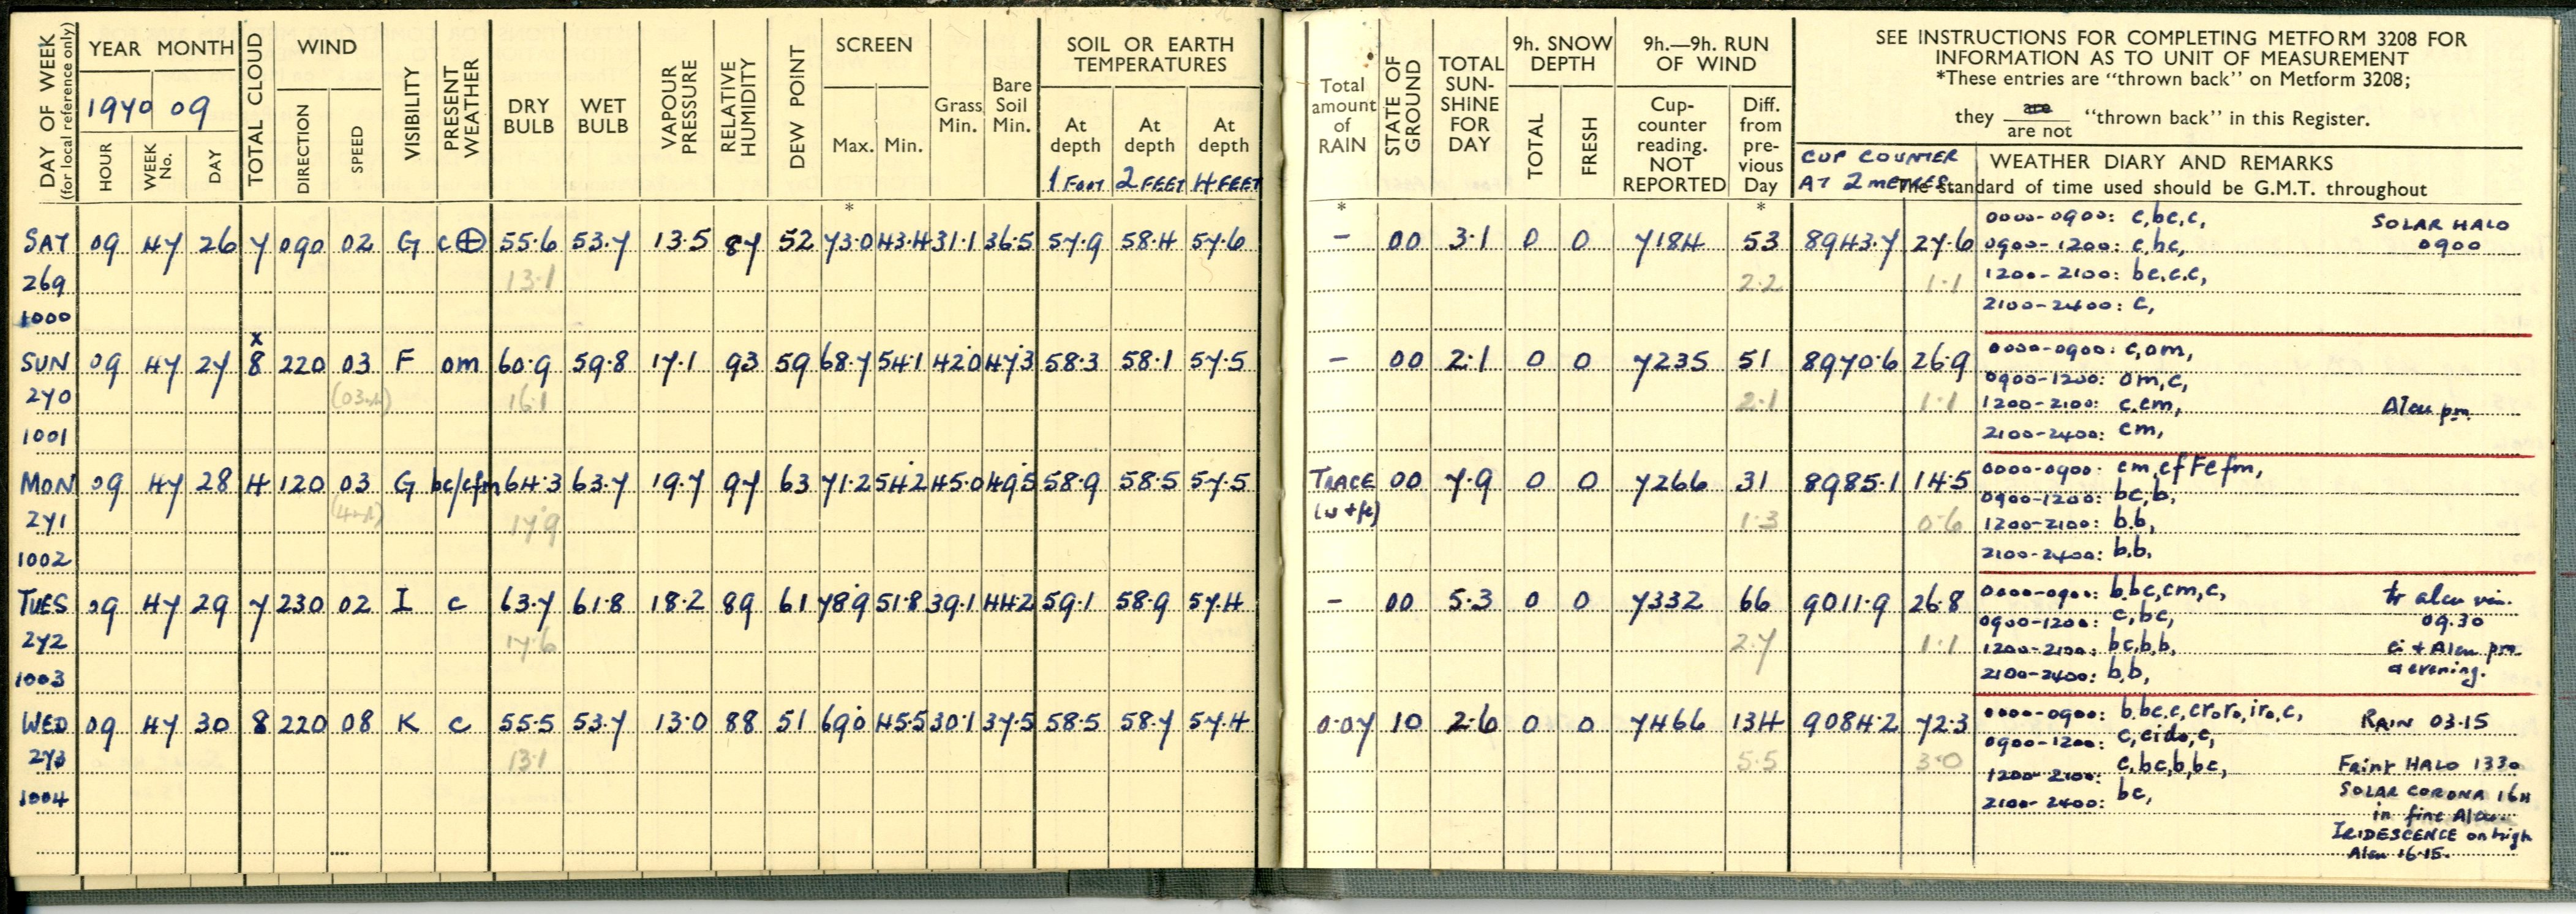 DAY OF WEEK
(for local reference only)
YEAR MONTH
1970 09
HOUR
WEEK No.
DAY
TOTAL CLOUD
WIND
DIRECTION
SPEED
VISIBILITY
PRESENT WEATHER
DRY BULB
WET BULB
VAPOUR PRESSURE
RELATIVE HUMIDITY
DEW POINT
SCREEN
Max. Min.
Grass Min.
Bare Soil Min.
SOIL OR EARTH TEMPERATURES
At depth 1 FOOT
At depth 2 FEET
At depth 4 FEET
Total amount of RAIN
STATE OF GROUND
TOTAL SUN-SHINE FOR DAY
9h. SNOW DEPTH
TOTAL
FRESH
9h.—9h. RUN OF WIND
Cup-counter reading. NOT REPORTED
Diff. from pre-vious Day
SEE INSTRUCTIONS FOR COMPLETING METFORM 3208 FOR
INFORMATION AS TO UNIT OF MEASUREMENT
*These entries are "thrown back" on Metform 3208;
they are / are not "thrown back" in this Register.
CUP COUNTER
AT 2 METRES
WEATHER DIARY AND REMARKS
The standard of time used should be G.M.T. throughout
* * *
SAT 09 47 26 7 090 02 G c⊕ 55.6 53.7 13.5 87 52 73.0 43.4 31.1 36.5 57.9 58.4 57.6 – 00 3.1 0 0 7184 53 8943.7 27.6
269 13.1 2.2 1.1
1000
0000-0900: c,bc,c,
0900-1200: c,bc,
1200-2100: bc,c,c,
2100-2400: c,
SOLAR HALO
0900
x
SUN 09 47 27 8 220 03 F om 60.9 59.8 17.1 93 59 68.7 54.1 42.0 47.3 58.3 58.1 57.5 – 00 2.1 0 0 7235 51 8970.6 26.9
270 16.1 2.1 1.1
1001
0000-0900: c,om,
0900-1200: om,c,
1200-2100: c,cm,
2100-2400: cm,
Alcu pm.
MON 09 47 28 4 120 03 G bc/cfm 64.3 63.7 19.7 97 63 71.2 54.2 45.0 49.5 58.9 58.5 57.5 TRACE 00 7.9 0 0 7266 31 8985.1 14.5
271 17.9 (w+fe) 1.3 0.6
1002
0000-0900: cm,cfFefm,
0900-1200: bc,b,
1200-2100: b,b,
2100-2400: b,b,
TUES 09 47 29 7 230 02 I c 63.7 61.8 18.2 89 61 78.9 51.8 39.1 44.2 59.1 58.9 57.4 – 00 5.3 0 0 7332 66 9011.9 26.8
272 17.6 2.7 1.1
1003
0000-0900: b,bc,cm,c,
0900-1200: c,bc,
1200-2100: bc,b,b,
2100-2400: b,b,
tr alcu vir.
09.30
ci + Alcu pm
& evening.
WED 09 47 30 8 220 08 K c 55.5 53.7 13.0 88 51 69.0 45.5 30.1 37.5 58.5 58.7 57.4 0.07 10 2.6 0 0 7466 134 9084.2 72.3
273 13.1 5.5 3.0
1004
0000-0900: b,bc,c,cr₀r₀,ir₀,c,
0900-1200: c,cid₀,c,
1200-2100: c,bc,b,bc,
2100-2400: bc,
RAIN 03.15
FAINT HALO 1330
SOLAR CORONA 16H
in fine Alcu.
IRIDESCENCE on high
Alcu 16.15.